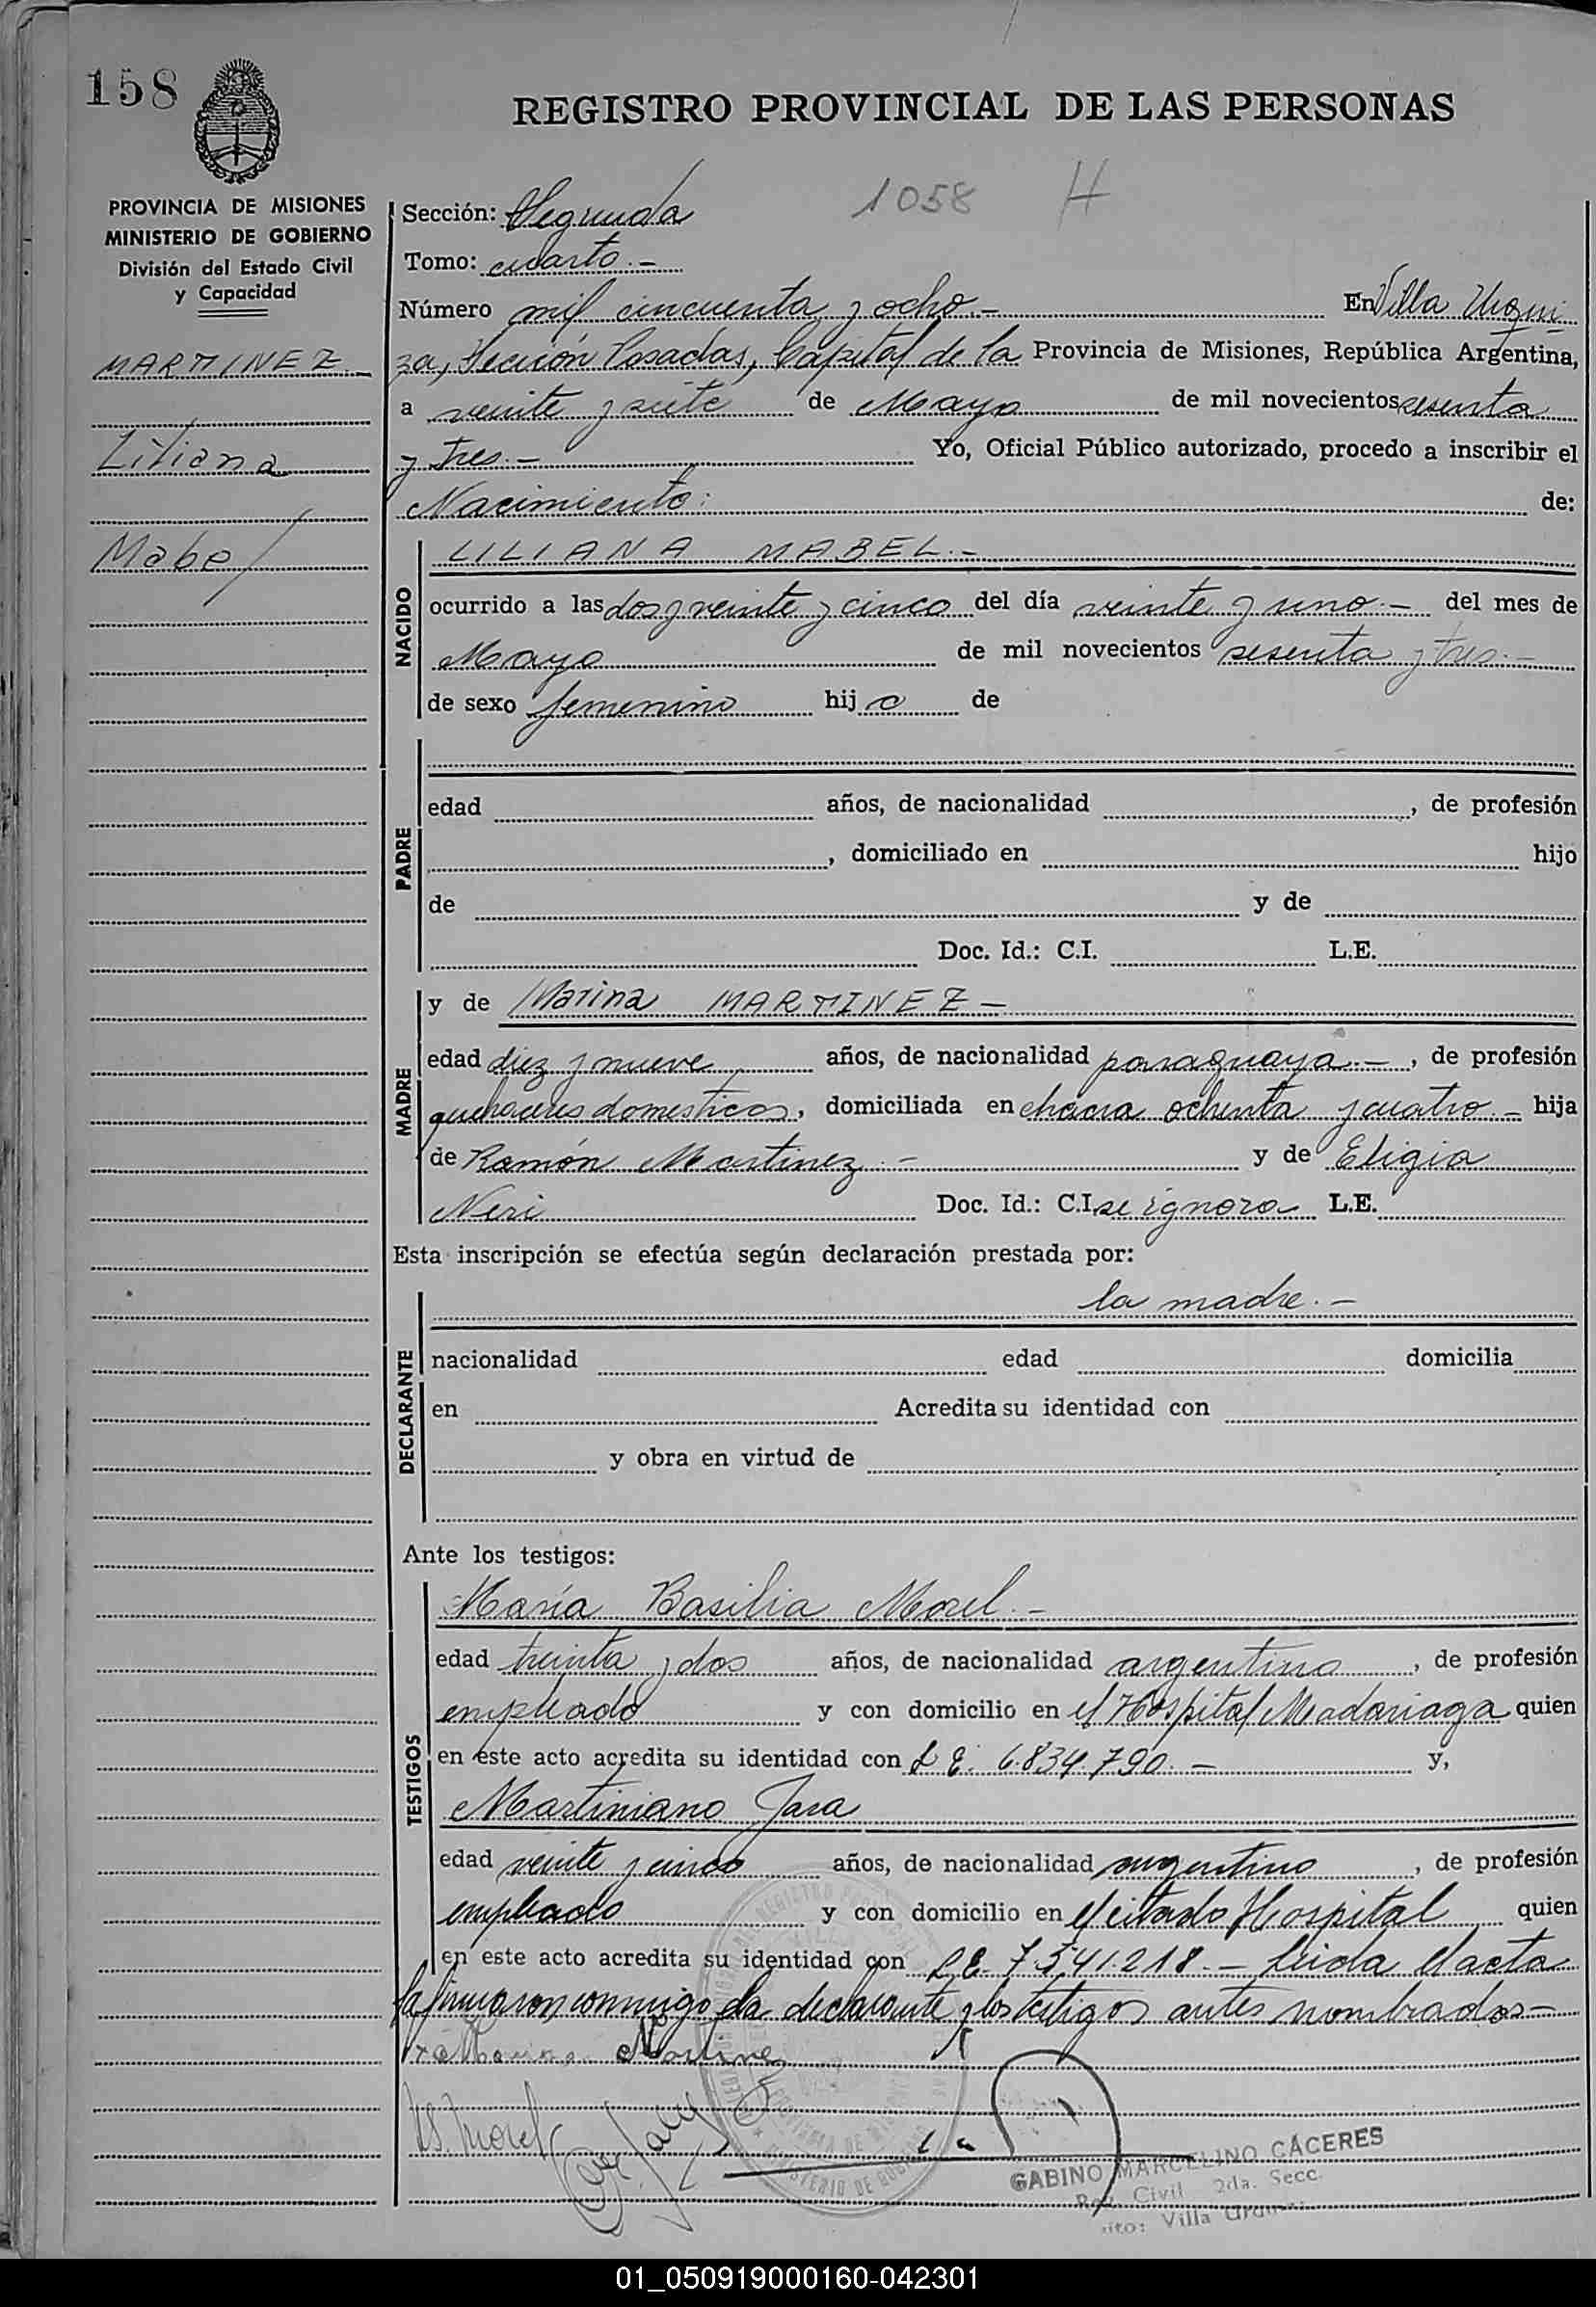 158
REGISTRO PROVINCIAL DE LAS PERSONAS
PROVINCIA DE MISIONES
MINISTERIO DE GOBIERNO
División del Estado Civil
y Capacidad
MARTINEZ.-
Liliana
Mabel
1058 H
Sección: Segunda
Tomo: cuarto.-
Número mil cincuenta y ocho.- En Villa Urqui
za, Sección Posadas, Capital de la Provincia de Misiones, República Argentina,
a veinte y siete de Mayo de mil novecientos sesenta
y tres.- Yo, Oficial Público autorizado, procedo a inscribir el
Nacimiento: de:
NACIDO
LILIANA MABEL.-
ocurrido a las dos y veinte y cinco del día veinte y uno.- del mes de
Mayo de mil novecientos sesenta y tres.-
de sexo femenino hij a de
PADRE
edad años, de nacionalidad , de profesión
, domiciliado en hijo
de y de
Doc. Id.: C.I. L.E.
MADRE
y de Marina MARTINEZ-
edad diez y nueve años, de nacionalidad paraguaya.- , de profesión
quehaceres domesticos, domiciliada en chacra ochenta y cuatro.- hija
de Ramón Martinez.- y de Eligia
Neri Doc. Id.: C.I. se ignora L.E.
Esta inscripción se efectúa según declaración prestada por:
la madre.-
DECLARANTE
nacionalidad edad domicilia
en Acredita su identidad con
y obra en virtud de
Ante los testigos:
TESTIGOS
María Basilia Morel.-
edad treinta y dos años, de nacionalidad argentina , de profesión
empleada y con domicilio en el Hospital Madariaga quien
en este acto acredita su identidad con L E. 6.834.790.- y,
Martiniano Jara
edad veinte y cinco años, de nacionalidad argentino , de profesión
empleado y con domicilio en el citado Hospital quien
en este acto acredita su identidad con L.E. 7.541.218.- Leida el acta
la firmaron conmigo la declarante y los testigos antes nombrados-
Marina Martinez
B. Morel
Jara
GABINO MARCELINO CÁCERES
Reg. Civil 2da. Secc.
Villa
01_050919000160-042301